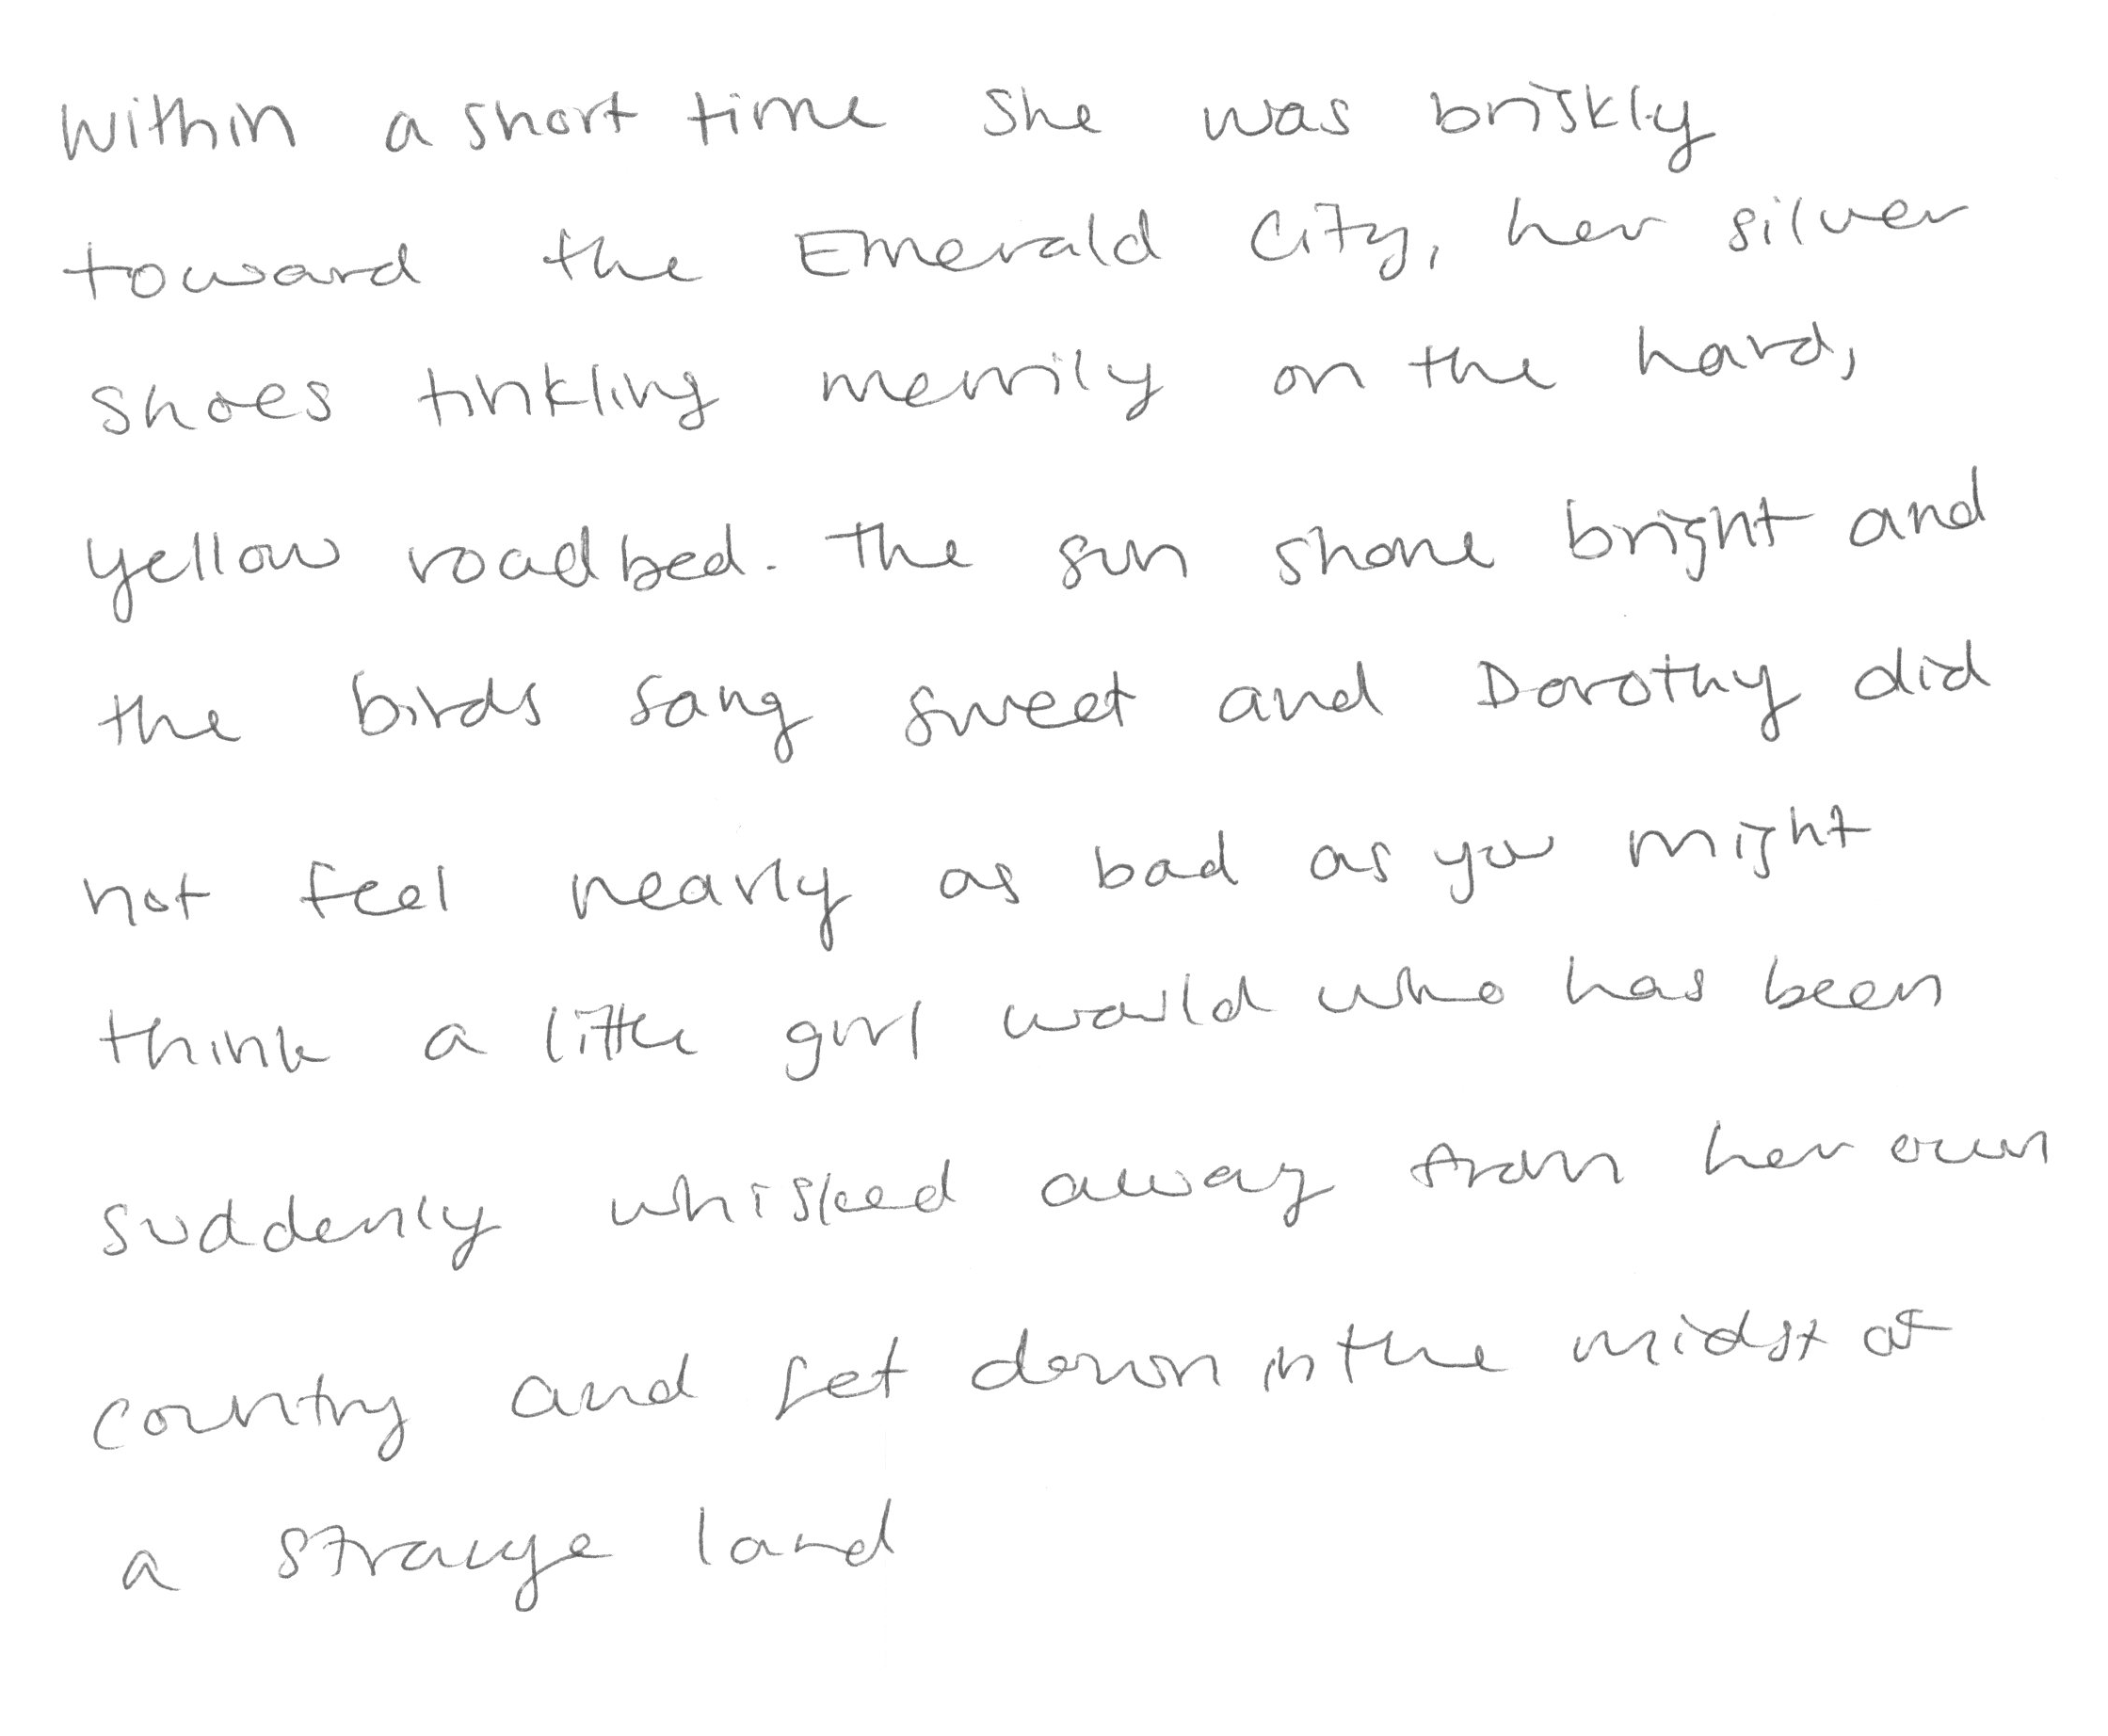 Within a short time she was briskly
toward the Emerald City, her silver
shoes tinkling merrily on the hard,
yellow roadbed. The sun shone bright and
the birds sang sweet and Dorothy did
not feel nearly as bad as you might
think a little girl would who has been
suddenly whisked away from her own
country and set down in the midst of
a strange land